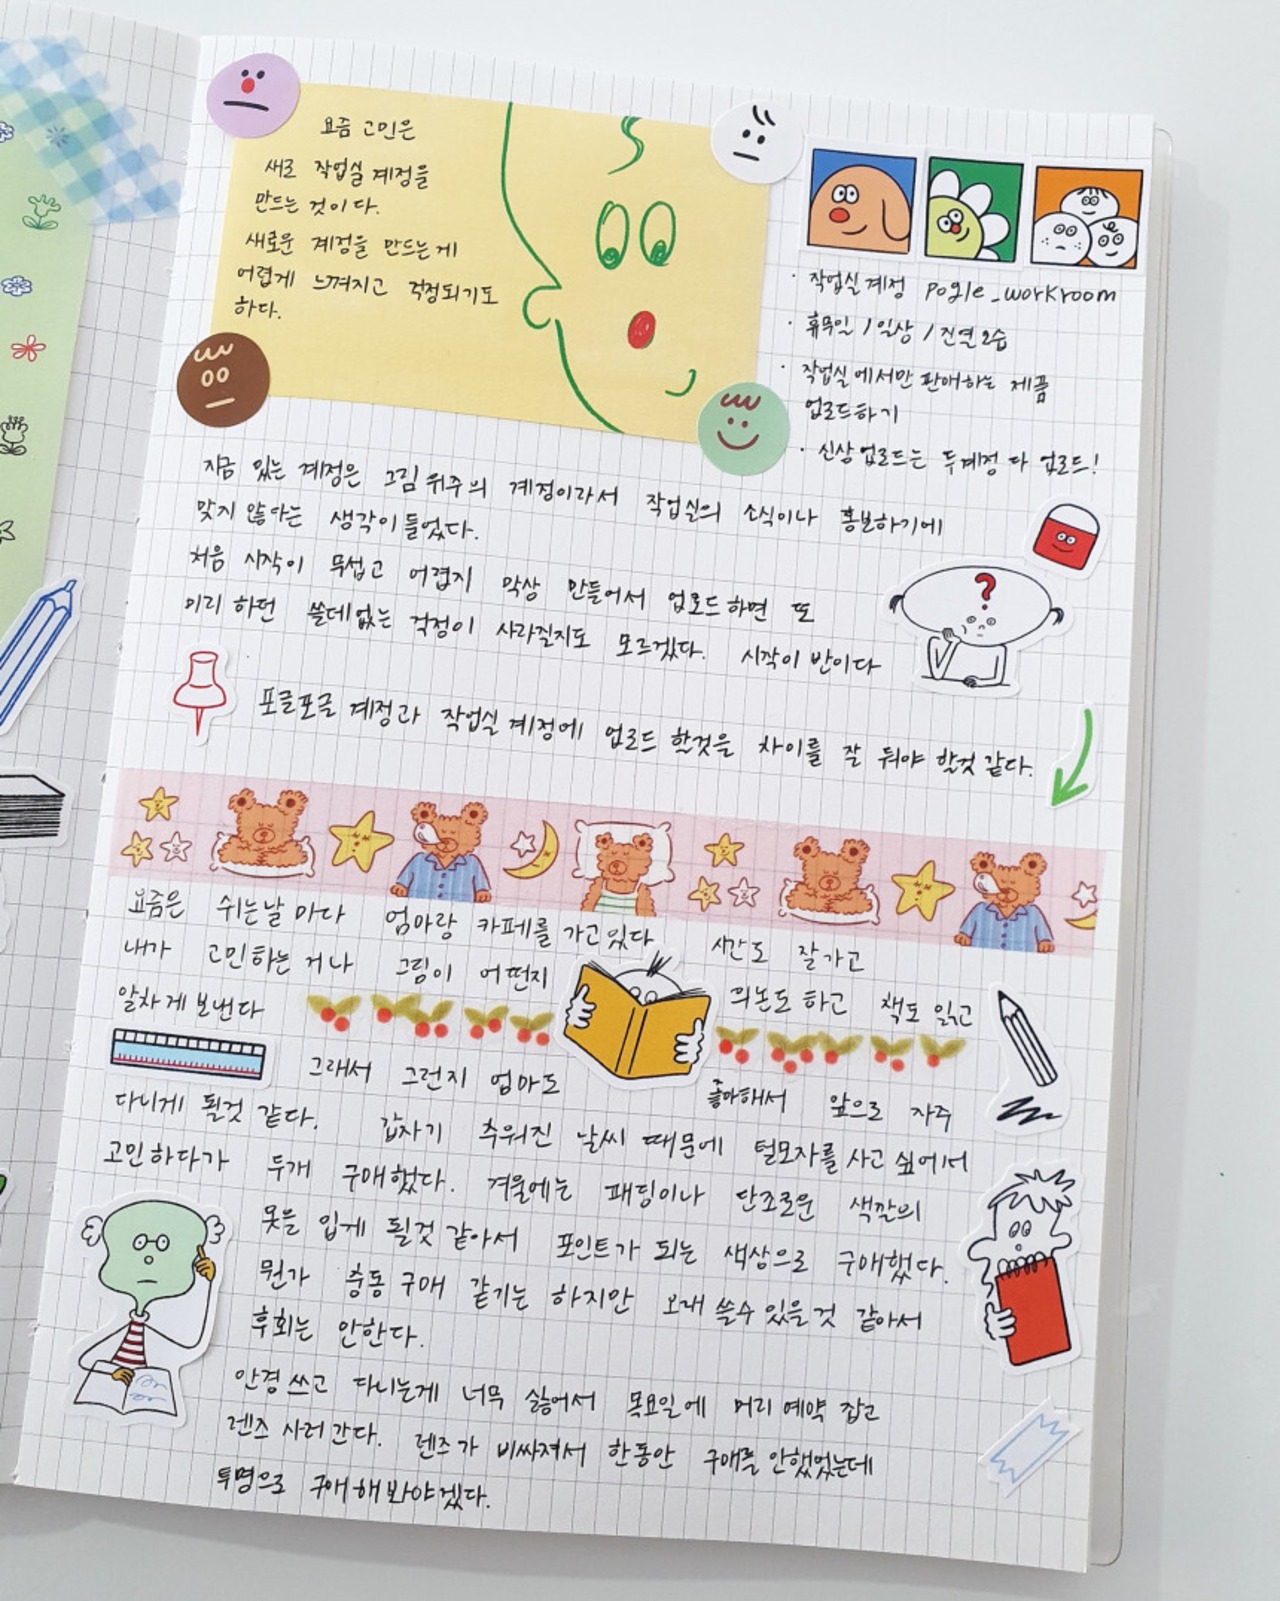 요즘 고민은
새로 작업실 계정을
만드는 것이다.
새로운 계정을 만드는게
어렵게 느껴지고 걱정되기도
하다.
· 작업실 계정 pogle_workroom
· 휴무일 / 일상 / 진열모습
· 작업실에서만 판매하는 제품
업로드하기
· 신상업로드는 두계정 다 업로드!
지금 있는 계정은 그림 위주의 계정이라서 작업실의 소식이나 홍보하기에
맞지 않아는 생각이 들었다.
처음 시작이 무섭고 어렵지 막상 만들어서 업로드하면 또
미리 하던 쓸데없는 걱정이 사라질지도 모르겠다. 시작이 반이다
?
포글포글 계정과 작업실 계정에 업로드 할것을 차이를 잘 둬야 할것 같다.
요즘은 쉬는날 마다 엄마랑 카페를 가고있다 시간도 잘가고
내가 고민하는거나 그림이 어떤지 의논도 하고 책도 읽고
알차게 보낸다
그래서 그런지 엄마도 좋아해서 앞으로 자주
다니게 될것 같다. 갑자기 추워진 날씨 때문에 털모자를 사고 싶어서
고민하다가 두개 구매했다. 겨울에는 패딩이나 단조로운 색깔의
옷을 입게 될것 같아서 포인트가 되는 색상으로 구매했다.
뭔가 충동구매 같기는 하지만 오래 쓸수 있을것 같아서
후회는 안한다.
안경쓰고 다니는게 너무 싫어서 목요일에 머리 예약 잡고
렌즈 사러 간다. 렌즈가 비싸져서 한동안 구매를 안했었는데
투명으로 구매해봐야겠다.